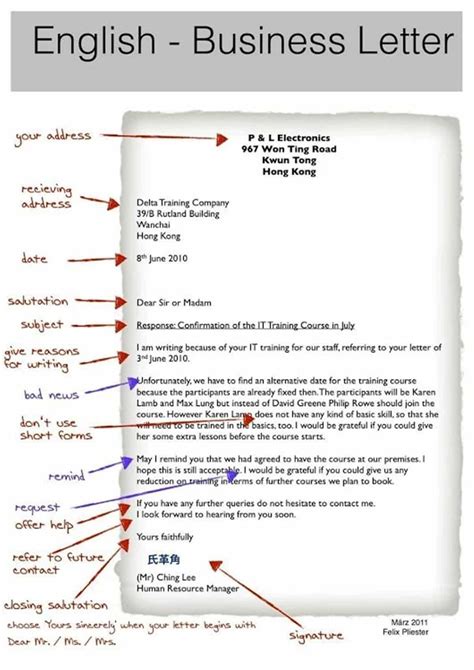 English - Business Letter
your address
P & L Electronics
967 Won Ting Road
Kwun Tong
Hong Kong
recieving
adrdress
Delta Training Company
39/B Rutland Building
Wanchai
Hong Kong
date
8th June 2010
salutation
Dear Sir or Madam
subject
Response: Confirmation of the IT Training Course in July
give reasons
for writing
I am writing because of your IT training for our staff, referring to your letter of
3rd June 2010.
bad news
Unfortunately, we have to find an alternative date for the training course
because the participants are already fixed then. The participants will be Karen
Lamb and Max Lung but instead of David Greene Philip Rowe should join the
course. However Karen Lamb does not have any kind of basic skill, so that she
will need to be trained in the basics, too. I would be grateful if you could give
her some extra lessons before the course starts.
don't use
short forms
remind
May I remind you that we had agreed to have the course at our premises. I
hope this is still acceptable. I would be grateful if you could give us any
reduction on training in terms of further courses we plan to book.
request
offer help
If you have any further queries do not hesitate to contact me.
I look forward to hearing from you soon.
refer to future
contact
Yours faithfully
氏革角
(Mr) Ching Lee
Human Resource Manager
closing salutation
choose 'Yours sincerely' when your letter begins with
Dear Mr. / Ms. / Mrs.
signature
März 2011
Felix Pliester